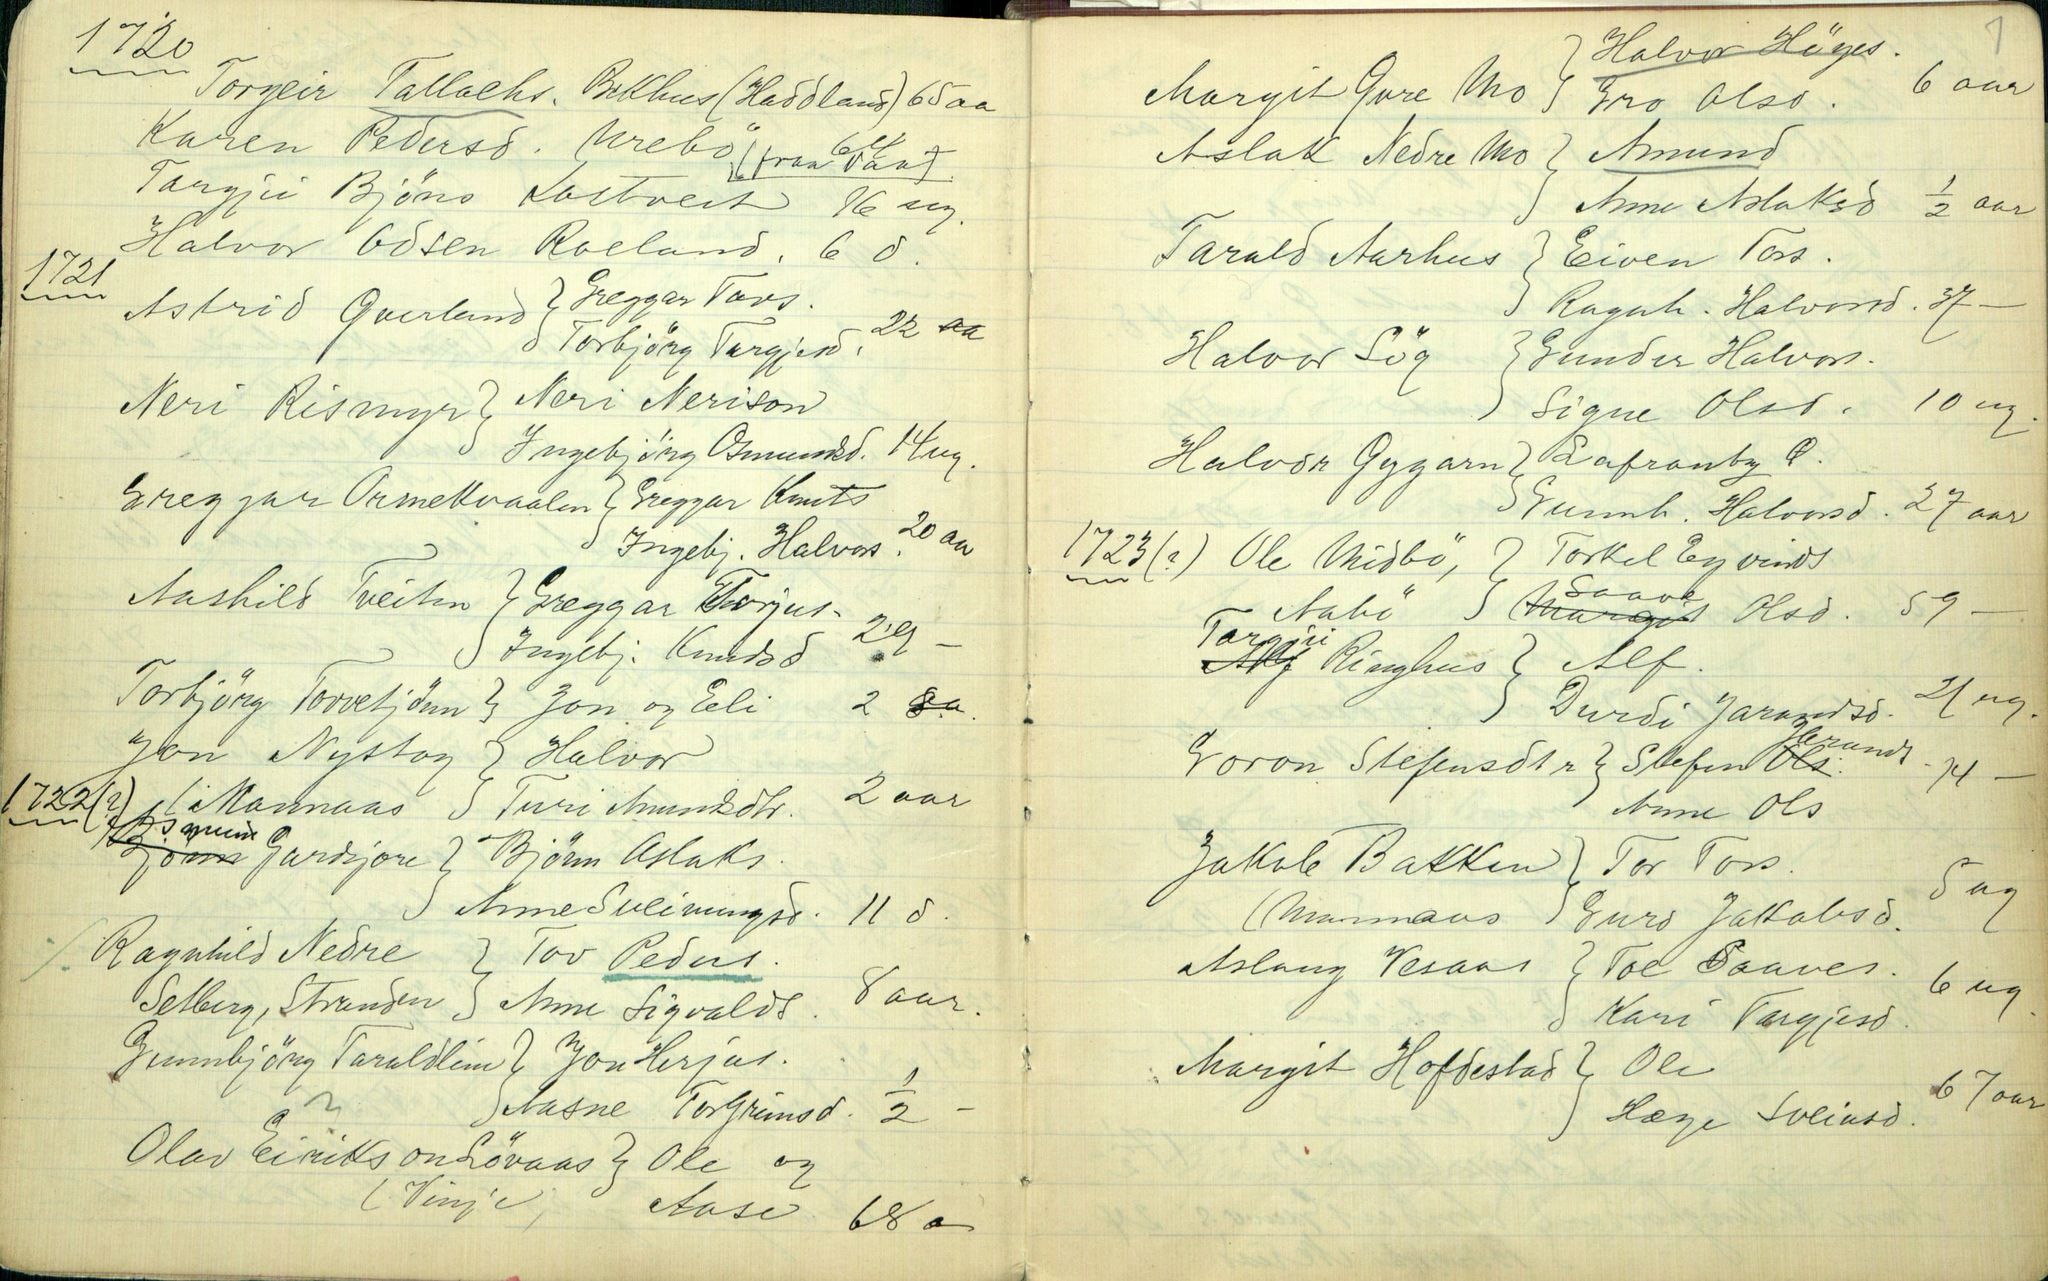 1720
Torgeir Tallachs. Bekhus (Haddland) 65 aa
Karen Pedersd. Urebö 64
(fraa Vaa)
Targjei Björns Lostveit 16 ug.
Halvor Odsen Roeland. 6 d.
1721
Astrid Qverland } Greggar Tovs.
Torbjörg Targjesd. 22 aa
Neri Rismyr } Neri Nerison
Ingebjörg Osmundsd. 14 ug.
Greggar Ormekvaalen } Greggar Knuts
Ingebj. Halvors. 20 aa
Aashild Tveiten } Greggar Torjus.
Ingebj. Knudsd 29 –
Torbjörg Torvetjönn } Jon og Eli 2
Jon Nystog } Halvor
1722(?) i Mannaas } Turi Amundsdtr. 2 aar
Gardsjore } Björn Aslaks.
Anne Sveinungsd. 11 d.
Ragnhild Nedre } Tov Peders.
Selberg, Stranden } Anne Sigvalds. 8 aar.
Gunnbjörg Taraldlien } Jon Herjus.
Aasne Torgrimsd. ½ –
?
Olav Eirikson Lövaas } Ole og
(Vinje, Aase 68 a
7
Halvor Höges.
Margit Gvre Mo } Gro Olsd. 6 aar
Aslak Nedre Mo } Amund
Anne Aslaksd ½ aar
Tarald Aarhus } Eiven Tors.
Ragnh. Halvorsd. 37 –
Halvor Lög } Gunder Halvors.
Signe Olsd. 10 ug.
Halvor Gygarn }
Gunnh. Halvorsd. 27 aar
1723(?) Ole Midbö, } Torkel Eyvinds
Saave
Nabö } Margit Olsd. 59 –
Targjei
Alf Ringhus } Alf.
Durdi Jarandsd. 21 ug.
Jarands
Goron Stefensdtr } Stefen Ols. 74 –
Anne Ols
Jakob Bakken } Tor Tors.
(Mannaas } Guro Jakobsd. 5 ug
Aslaug Vesaas } Toe Saaves.
Kari Targjesd. 6 ug.
Margit Hofdestad } Ole
Hæge Sveinsd. 67 aar